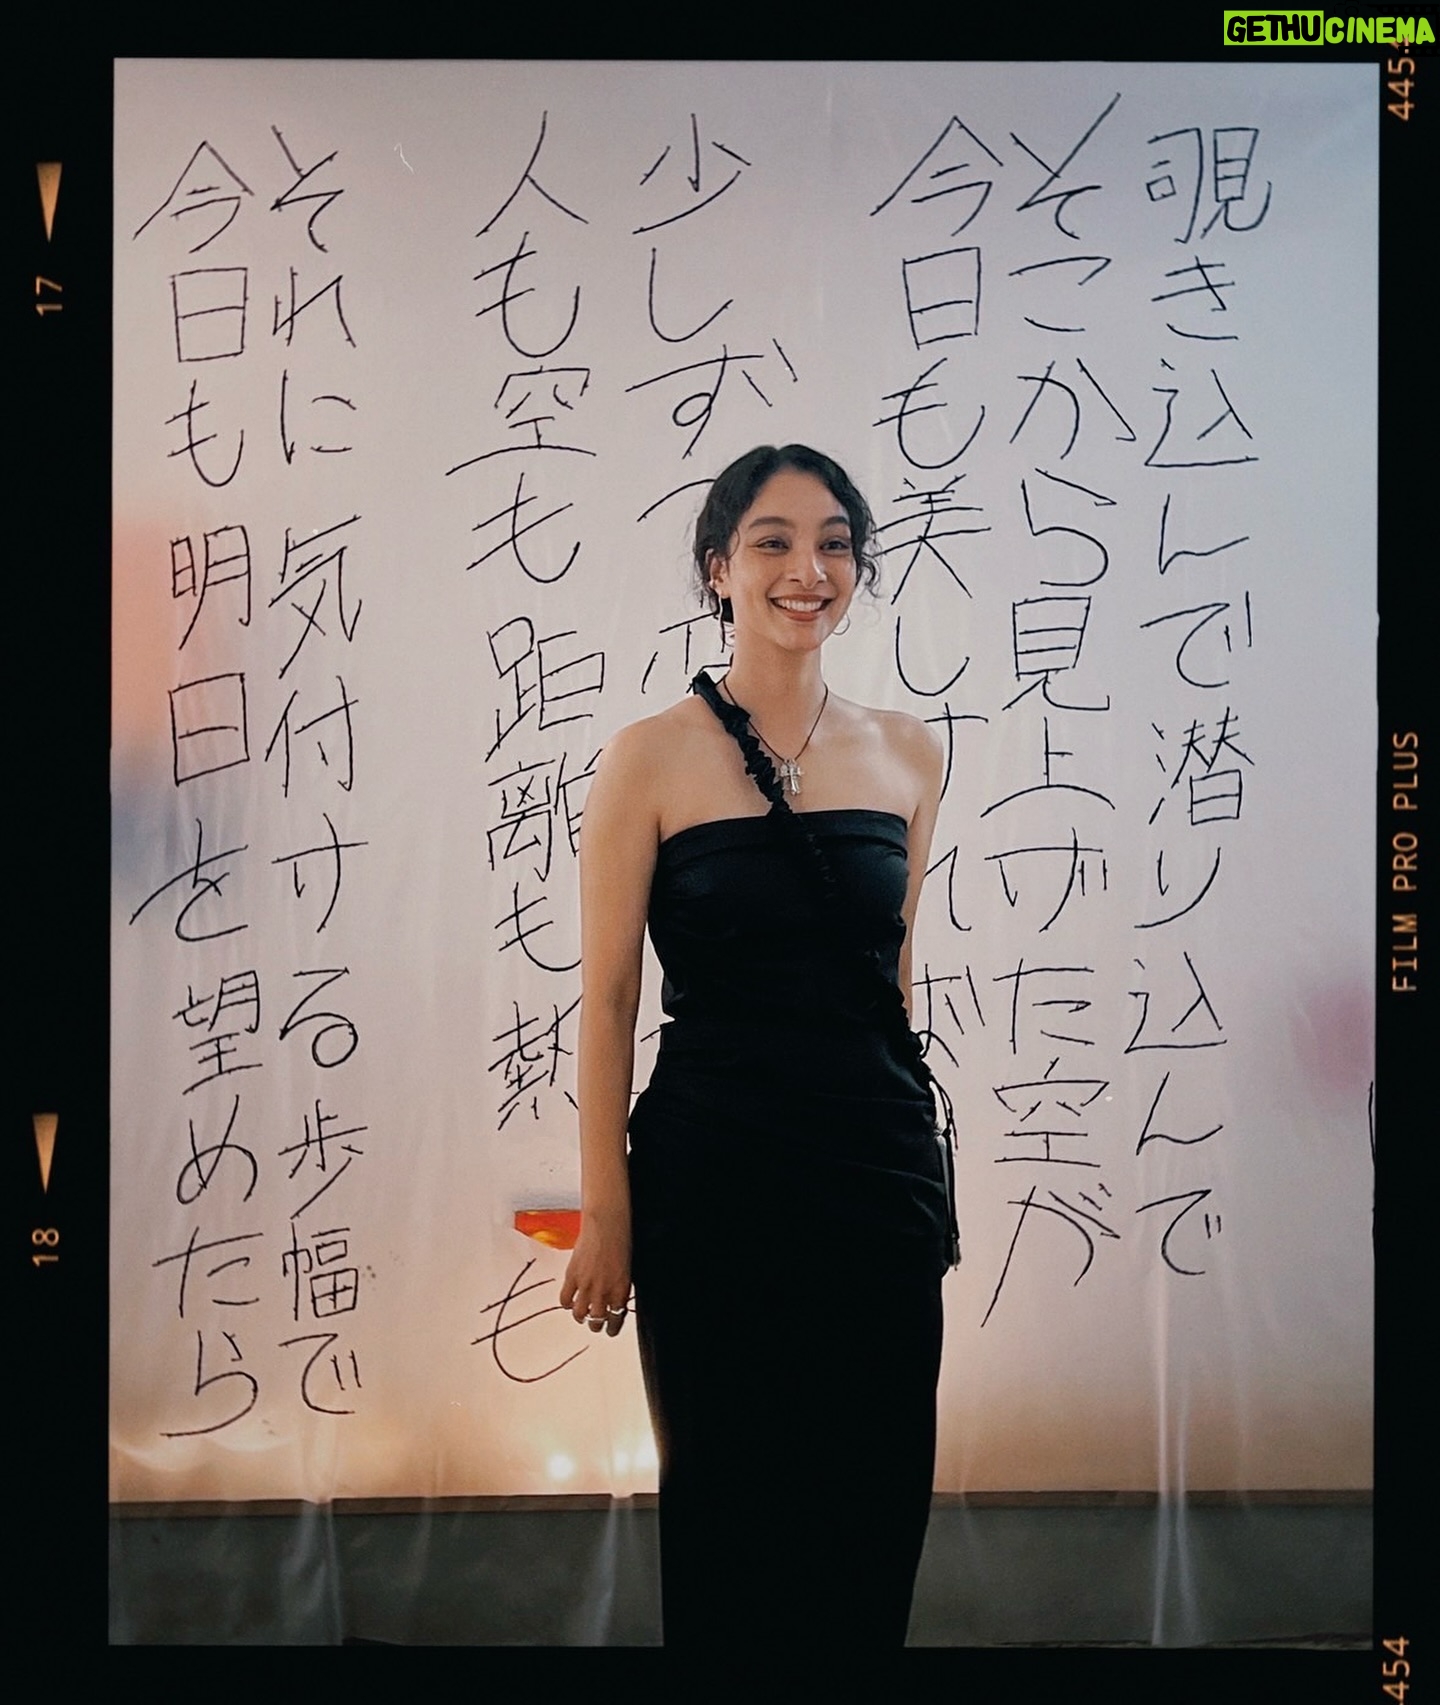 GETHUCINEMA
覗き込んで潜り込んで
そこから見上げた空が
今日も美しすればば
少しずつ
人も空も距離も熱も
それに気付ける歩幅で
今日も明日を望めたら
17
18
445
FILM PRO PLUS
454